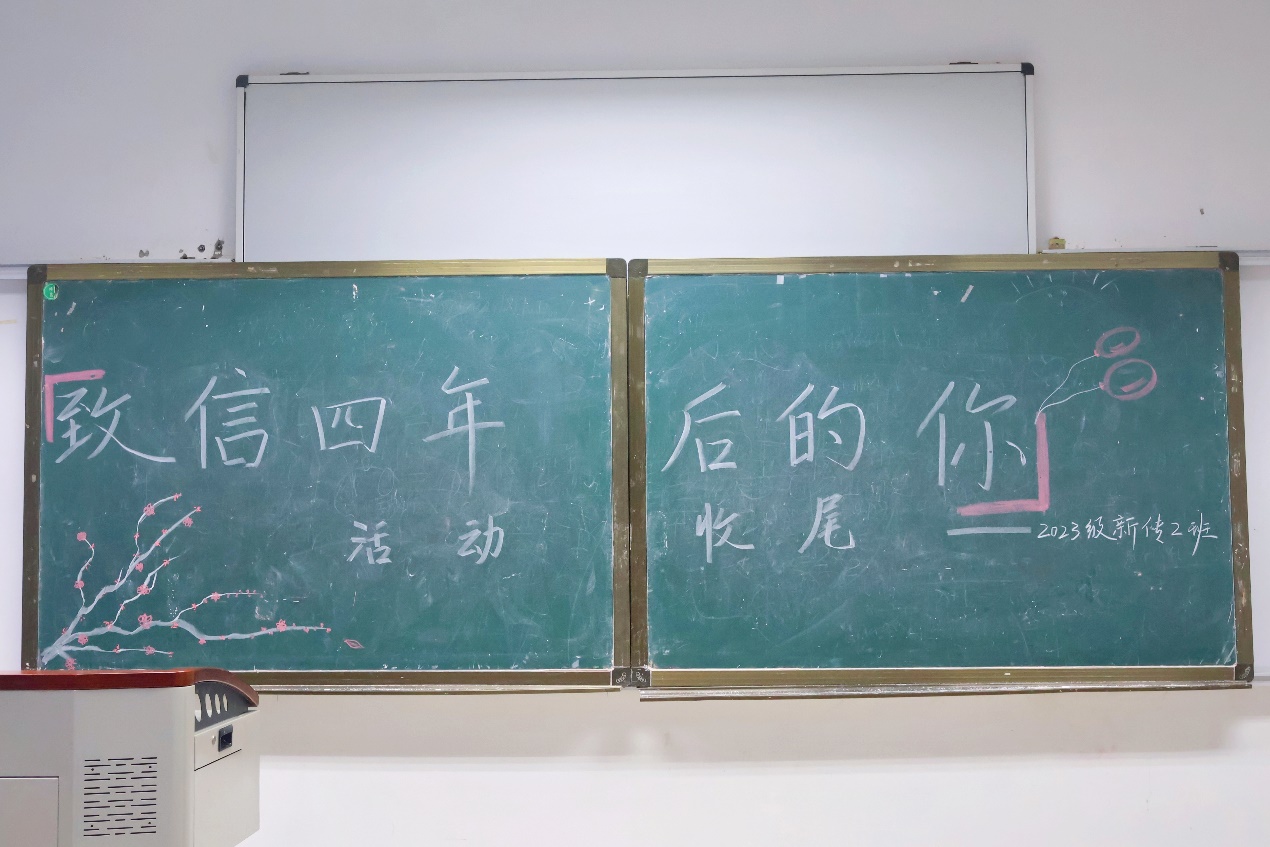 「致信四年后的你」
活动收尾
——2023级新传2班